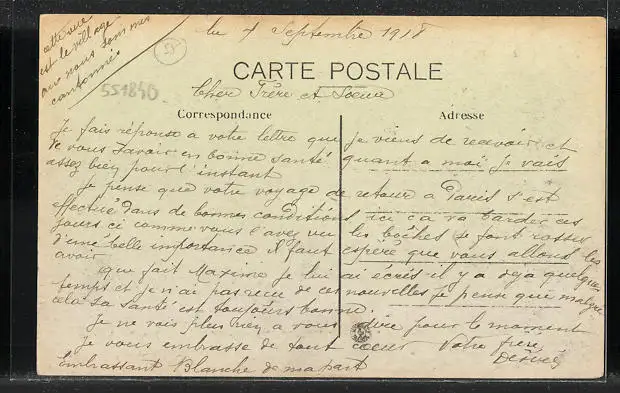 cette vue
est le village
ou nous sommes
cantonnés
le 4 Septembre 1918
55
551840
CARTE POSTALE
Cher Frère et Soeur
Correspondance
Adresse
Je fais réponse a votre lettre que je viens de recevoir et
de vous savoir en bonne santé quant a moi je vais
assez bien pour l'instant
Je pense que votre voyage de retour a Paris s'est
effectué dans de bonnes conditions ici ça va barder ces
jours ci comme vous l'avez vu les bôches se font rosser
d'une belle importance il faut espère que vous allons les
avoir
que fait Maxime je lui ai écris il y a deja quelque
temps et je n'ai pas recu de ces nouvelles je pense que malgré
cela sa santé est toujours bonne.
Je ne vois plus rien a vous dire pour le moment
Je vous embrasse de tout coeur Votre frère
Embrassant Blanche de ma part